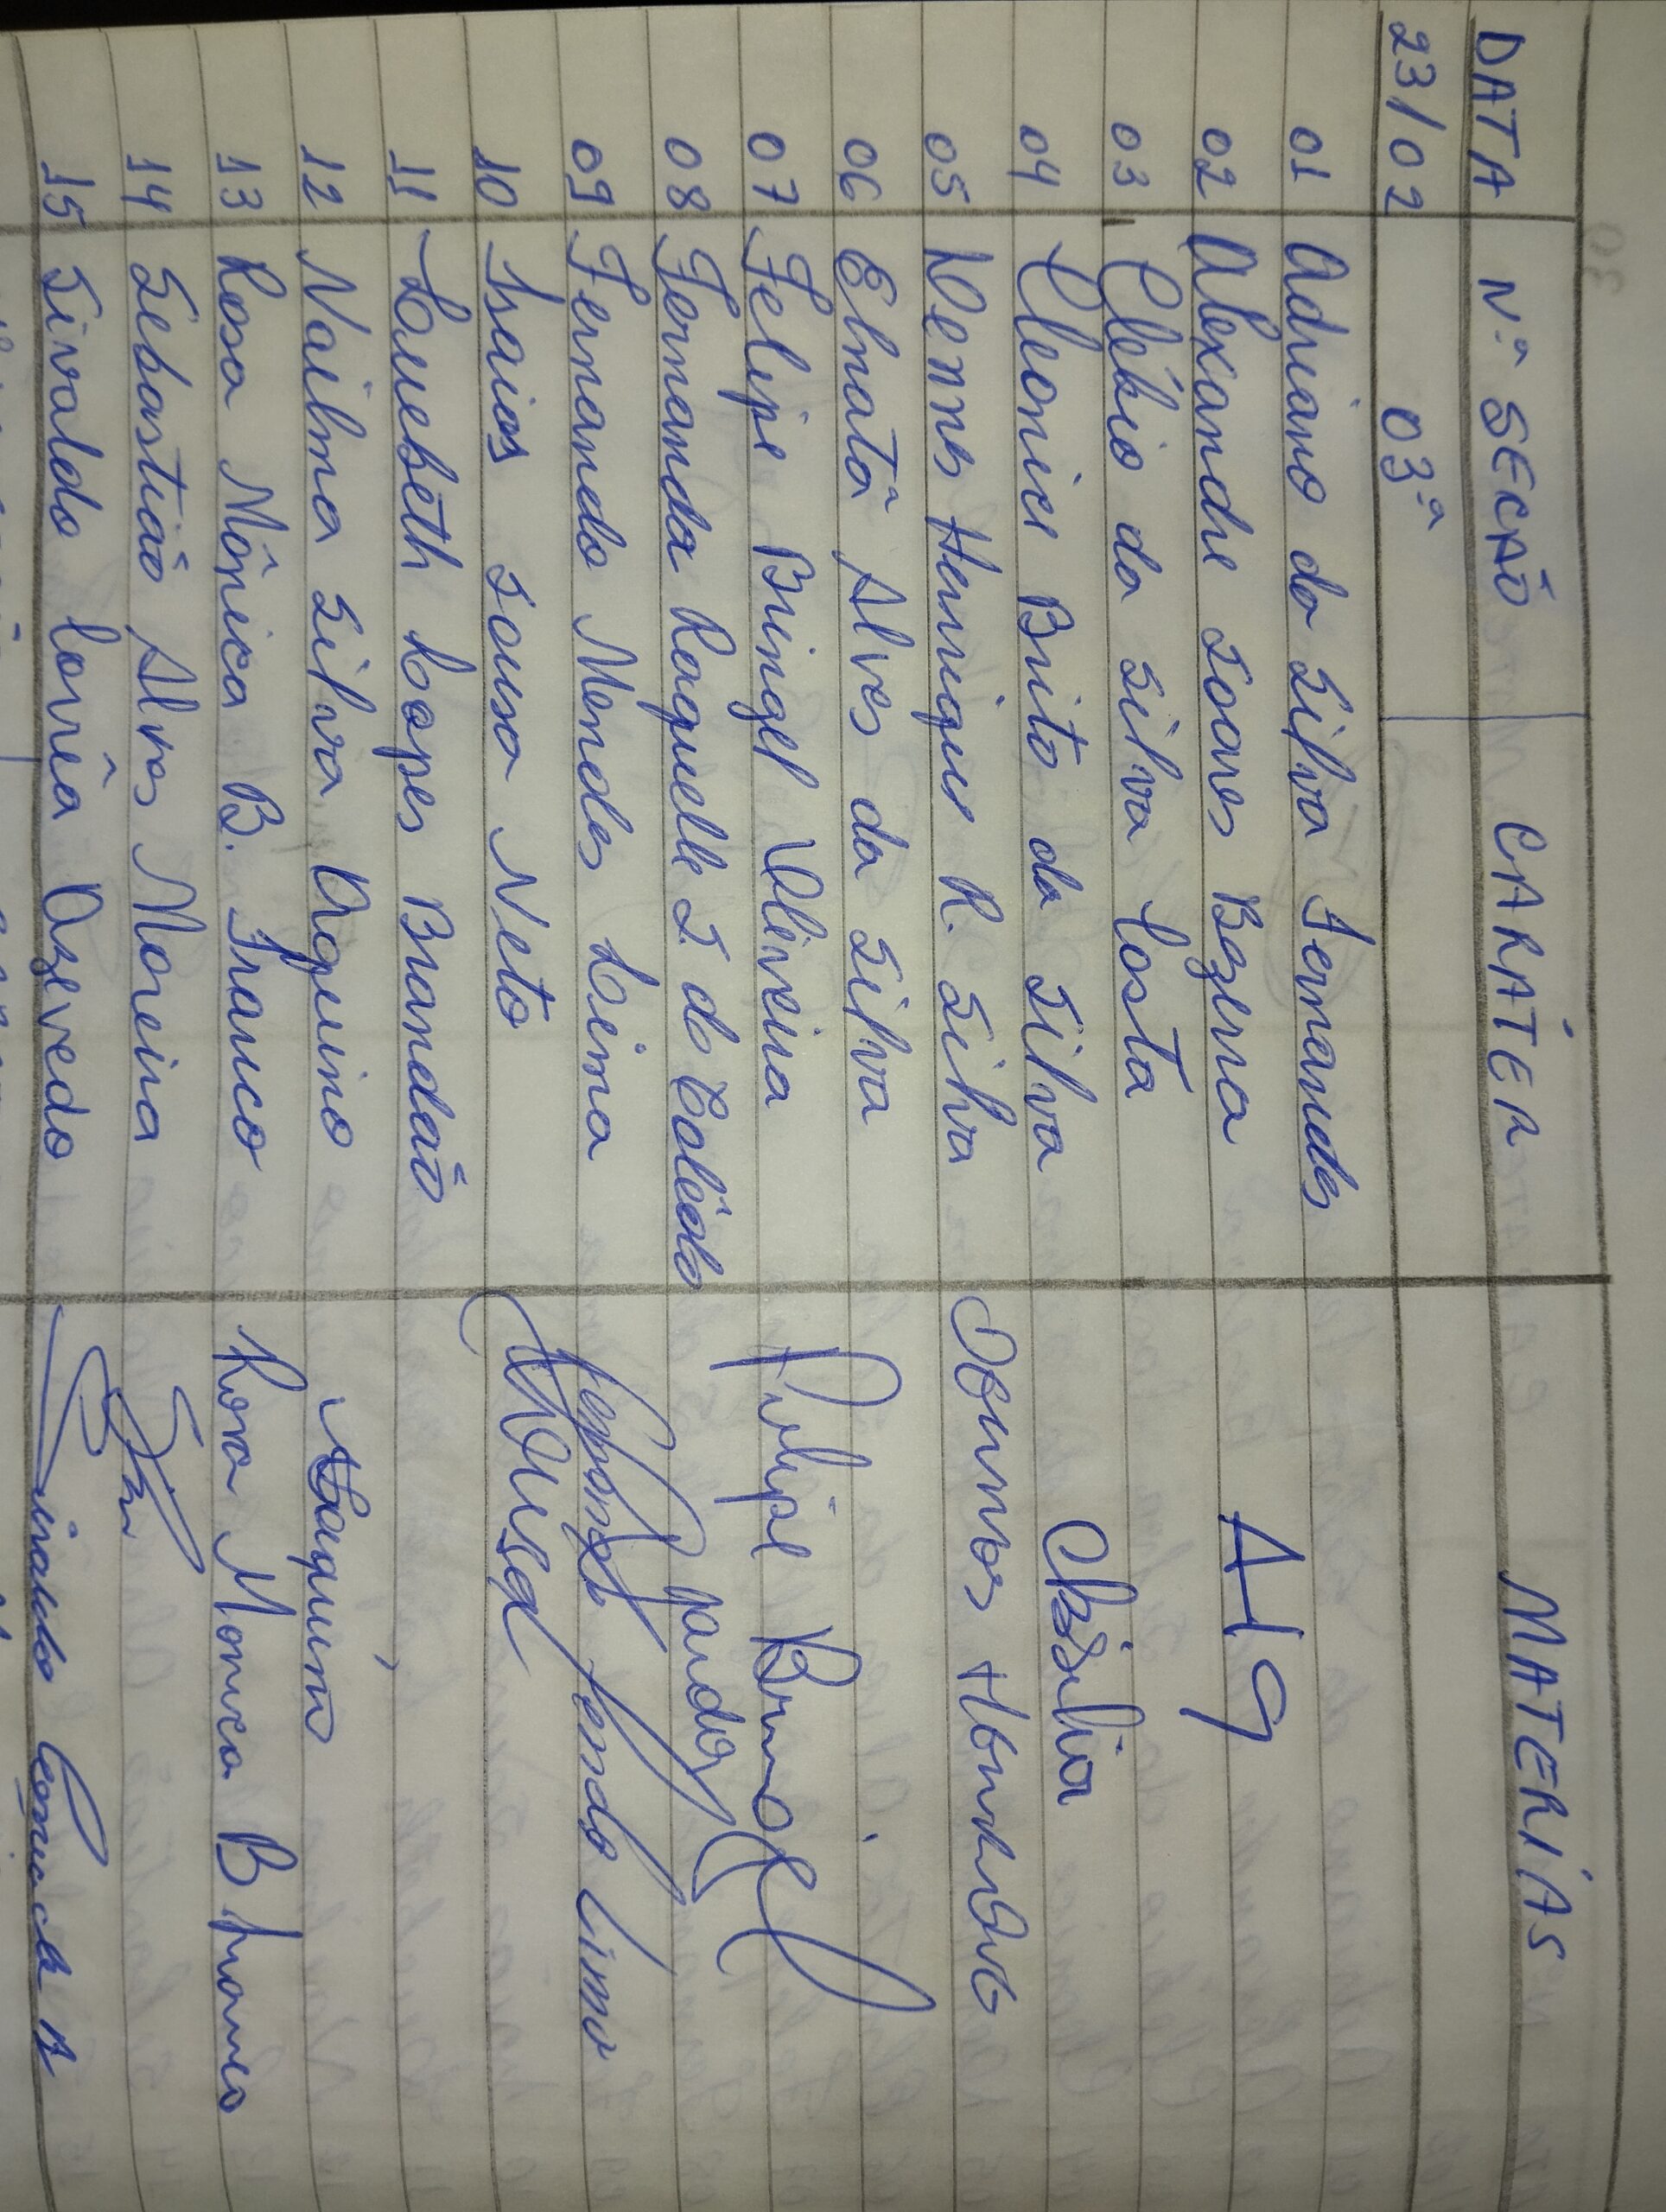 DATA Nª SECÃO CARÁTER MATERIÁS
23/02 03ª
01 Adriano da Silva Fernandes
02 Alexandre Soares Bezerra AJS
03 Clébio da Silva Costa
04 Cleonice Brito da Silva Clésilva
05 Dennes Henrique R. Silva Dennes Henrique
06 Elnatã Alves da Silva
07 Felipe Bringel Oliveira Felipe Bringel
08 Fernanda Raquelle S. do Coliêdo
09 Fernando Mendes Lima Lima
10 Isaias Sousa Neto Sousa
11 Louebeth Lopes Brandaõ
12 Nailma Silva Aquino Aquino
13 Rosa Mônica B. Franco Rosa Monica B Franco
14 Sebastiaõ Alves Moreira
15 Sivaldo Corrêa Azevedo Sivaldo Correa A